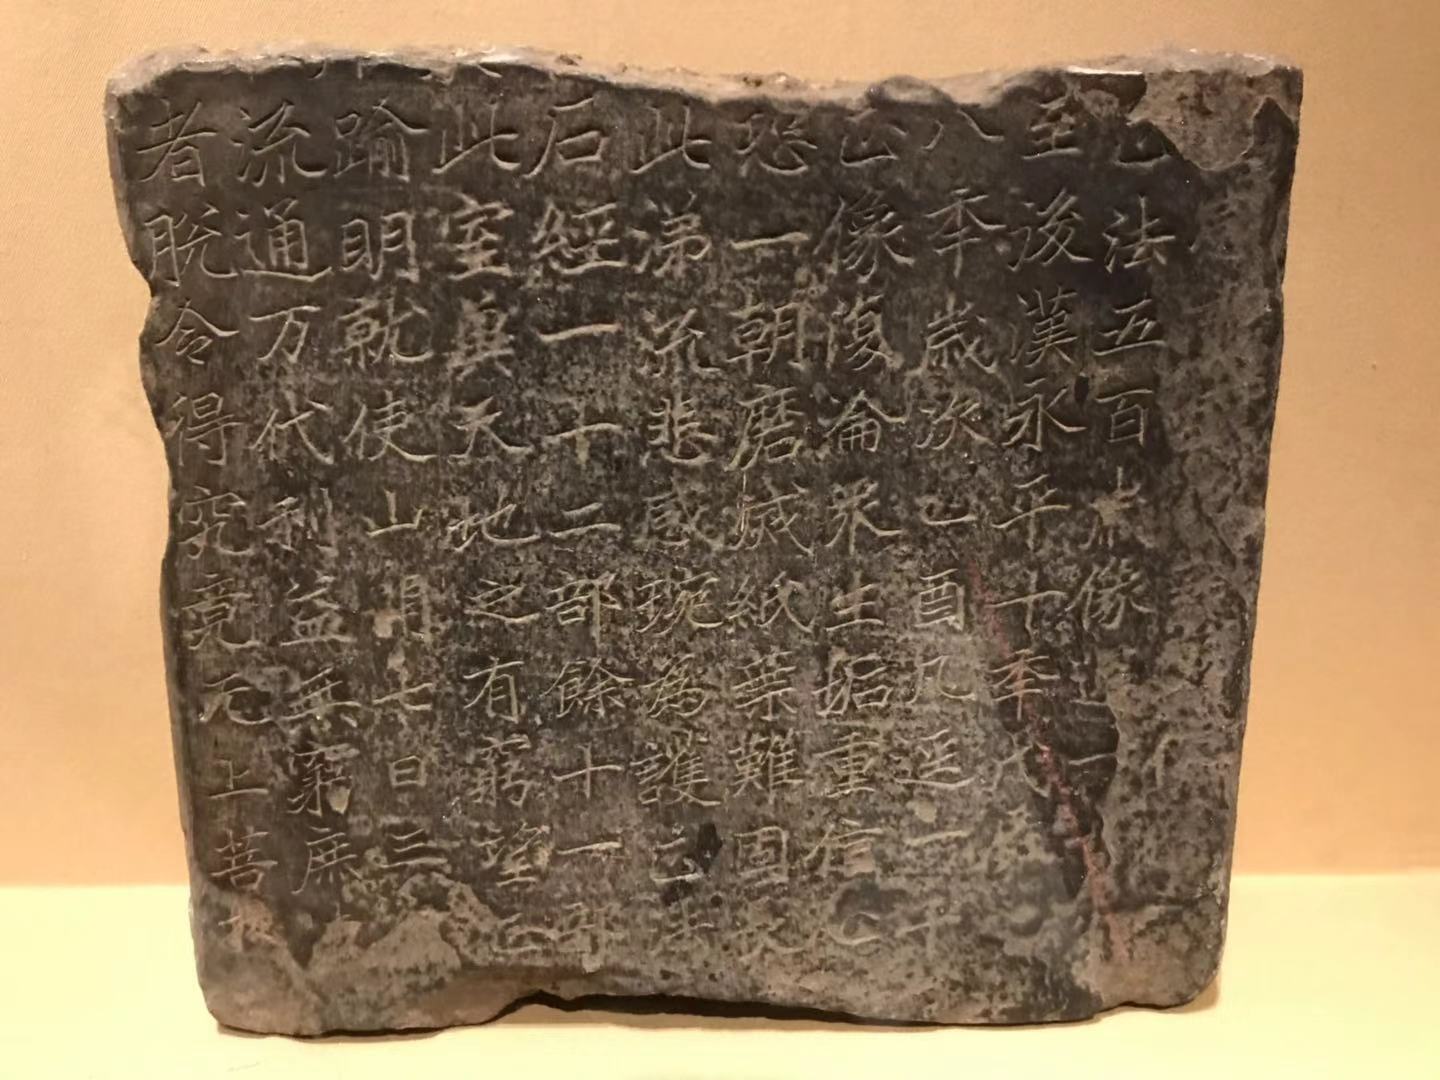 正法五百歲像
至後漢永平十季代
八季歲次己酉凡逕一千
正像復淪眾生垢重信心
恐一朝磨滅紙葉難固長
此涕流悲感琬為護正法
石經一十二部餘十一部
此室冀天地之有窮望正
踰明就使山 七日三
流通万代利益無窮庶
者脫令得究竟无上菩提